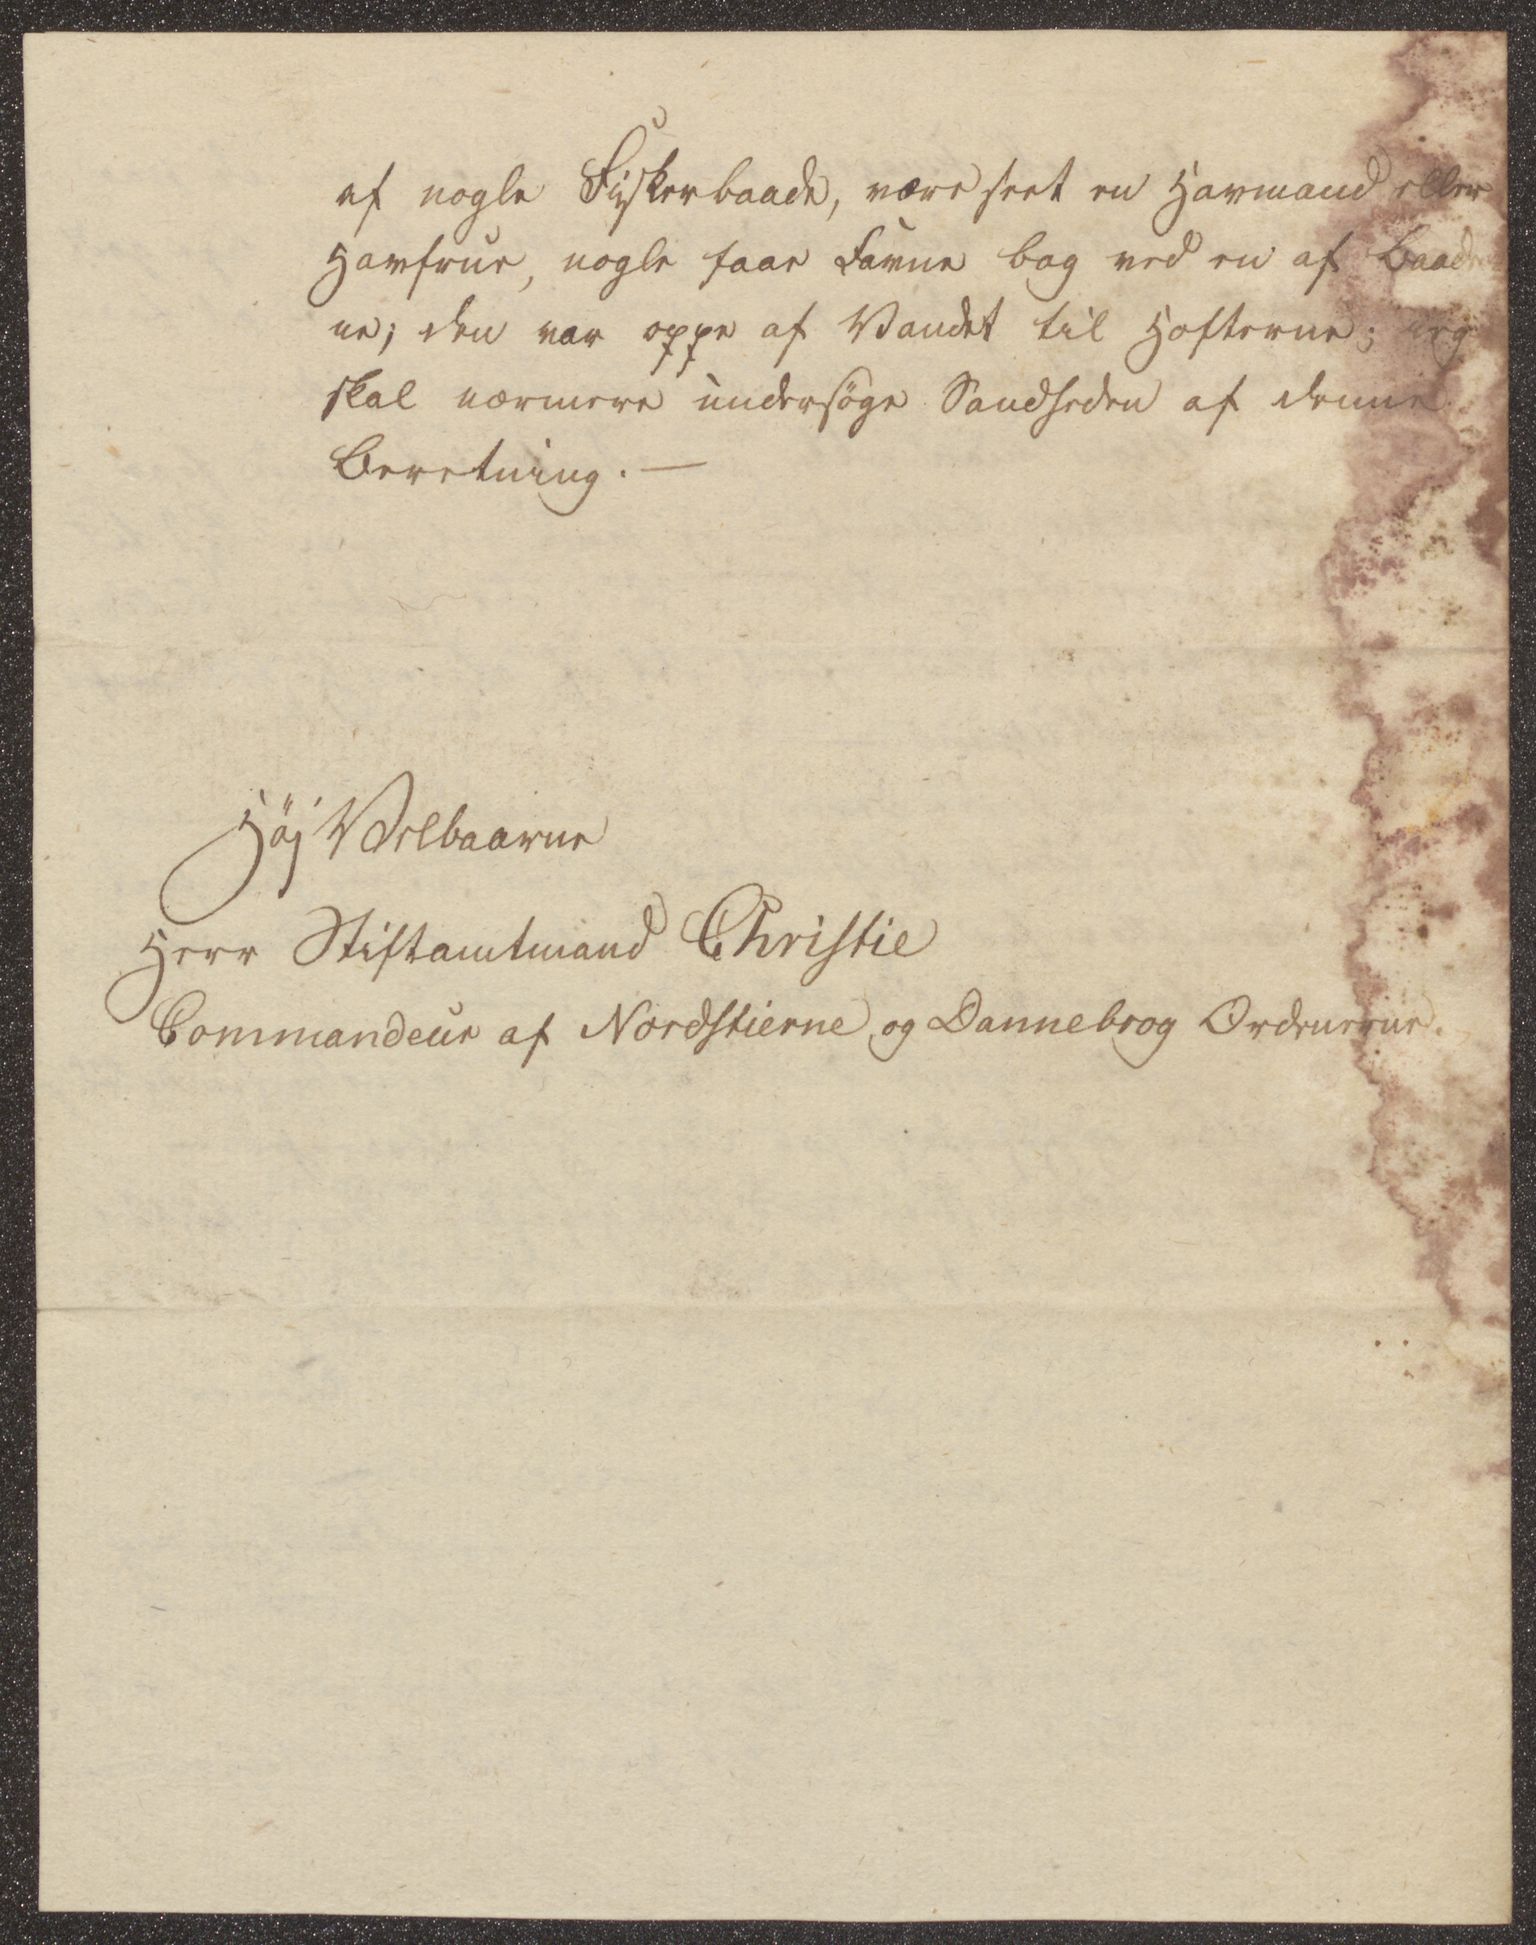 af nogle Fiskerbaade, være seet en Havmand eller
Havfrue, nogle faae Favne bag ved en af Baade
ne; den var oppe af Vandet til Hofterne; jeg
skal nærmere undersöge Sandheden af denne
Beretning. —
Höj Velbaarne
Herr Stiftamtmand Christie
Commandeur af Nordstierne og Dannebrog Ordenerne.